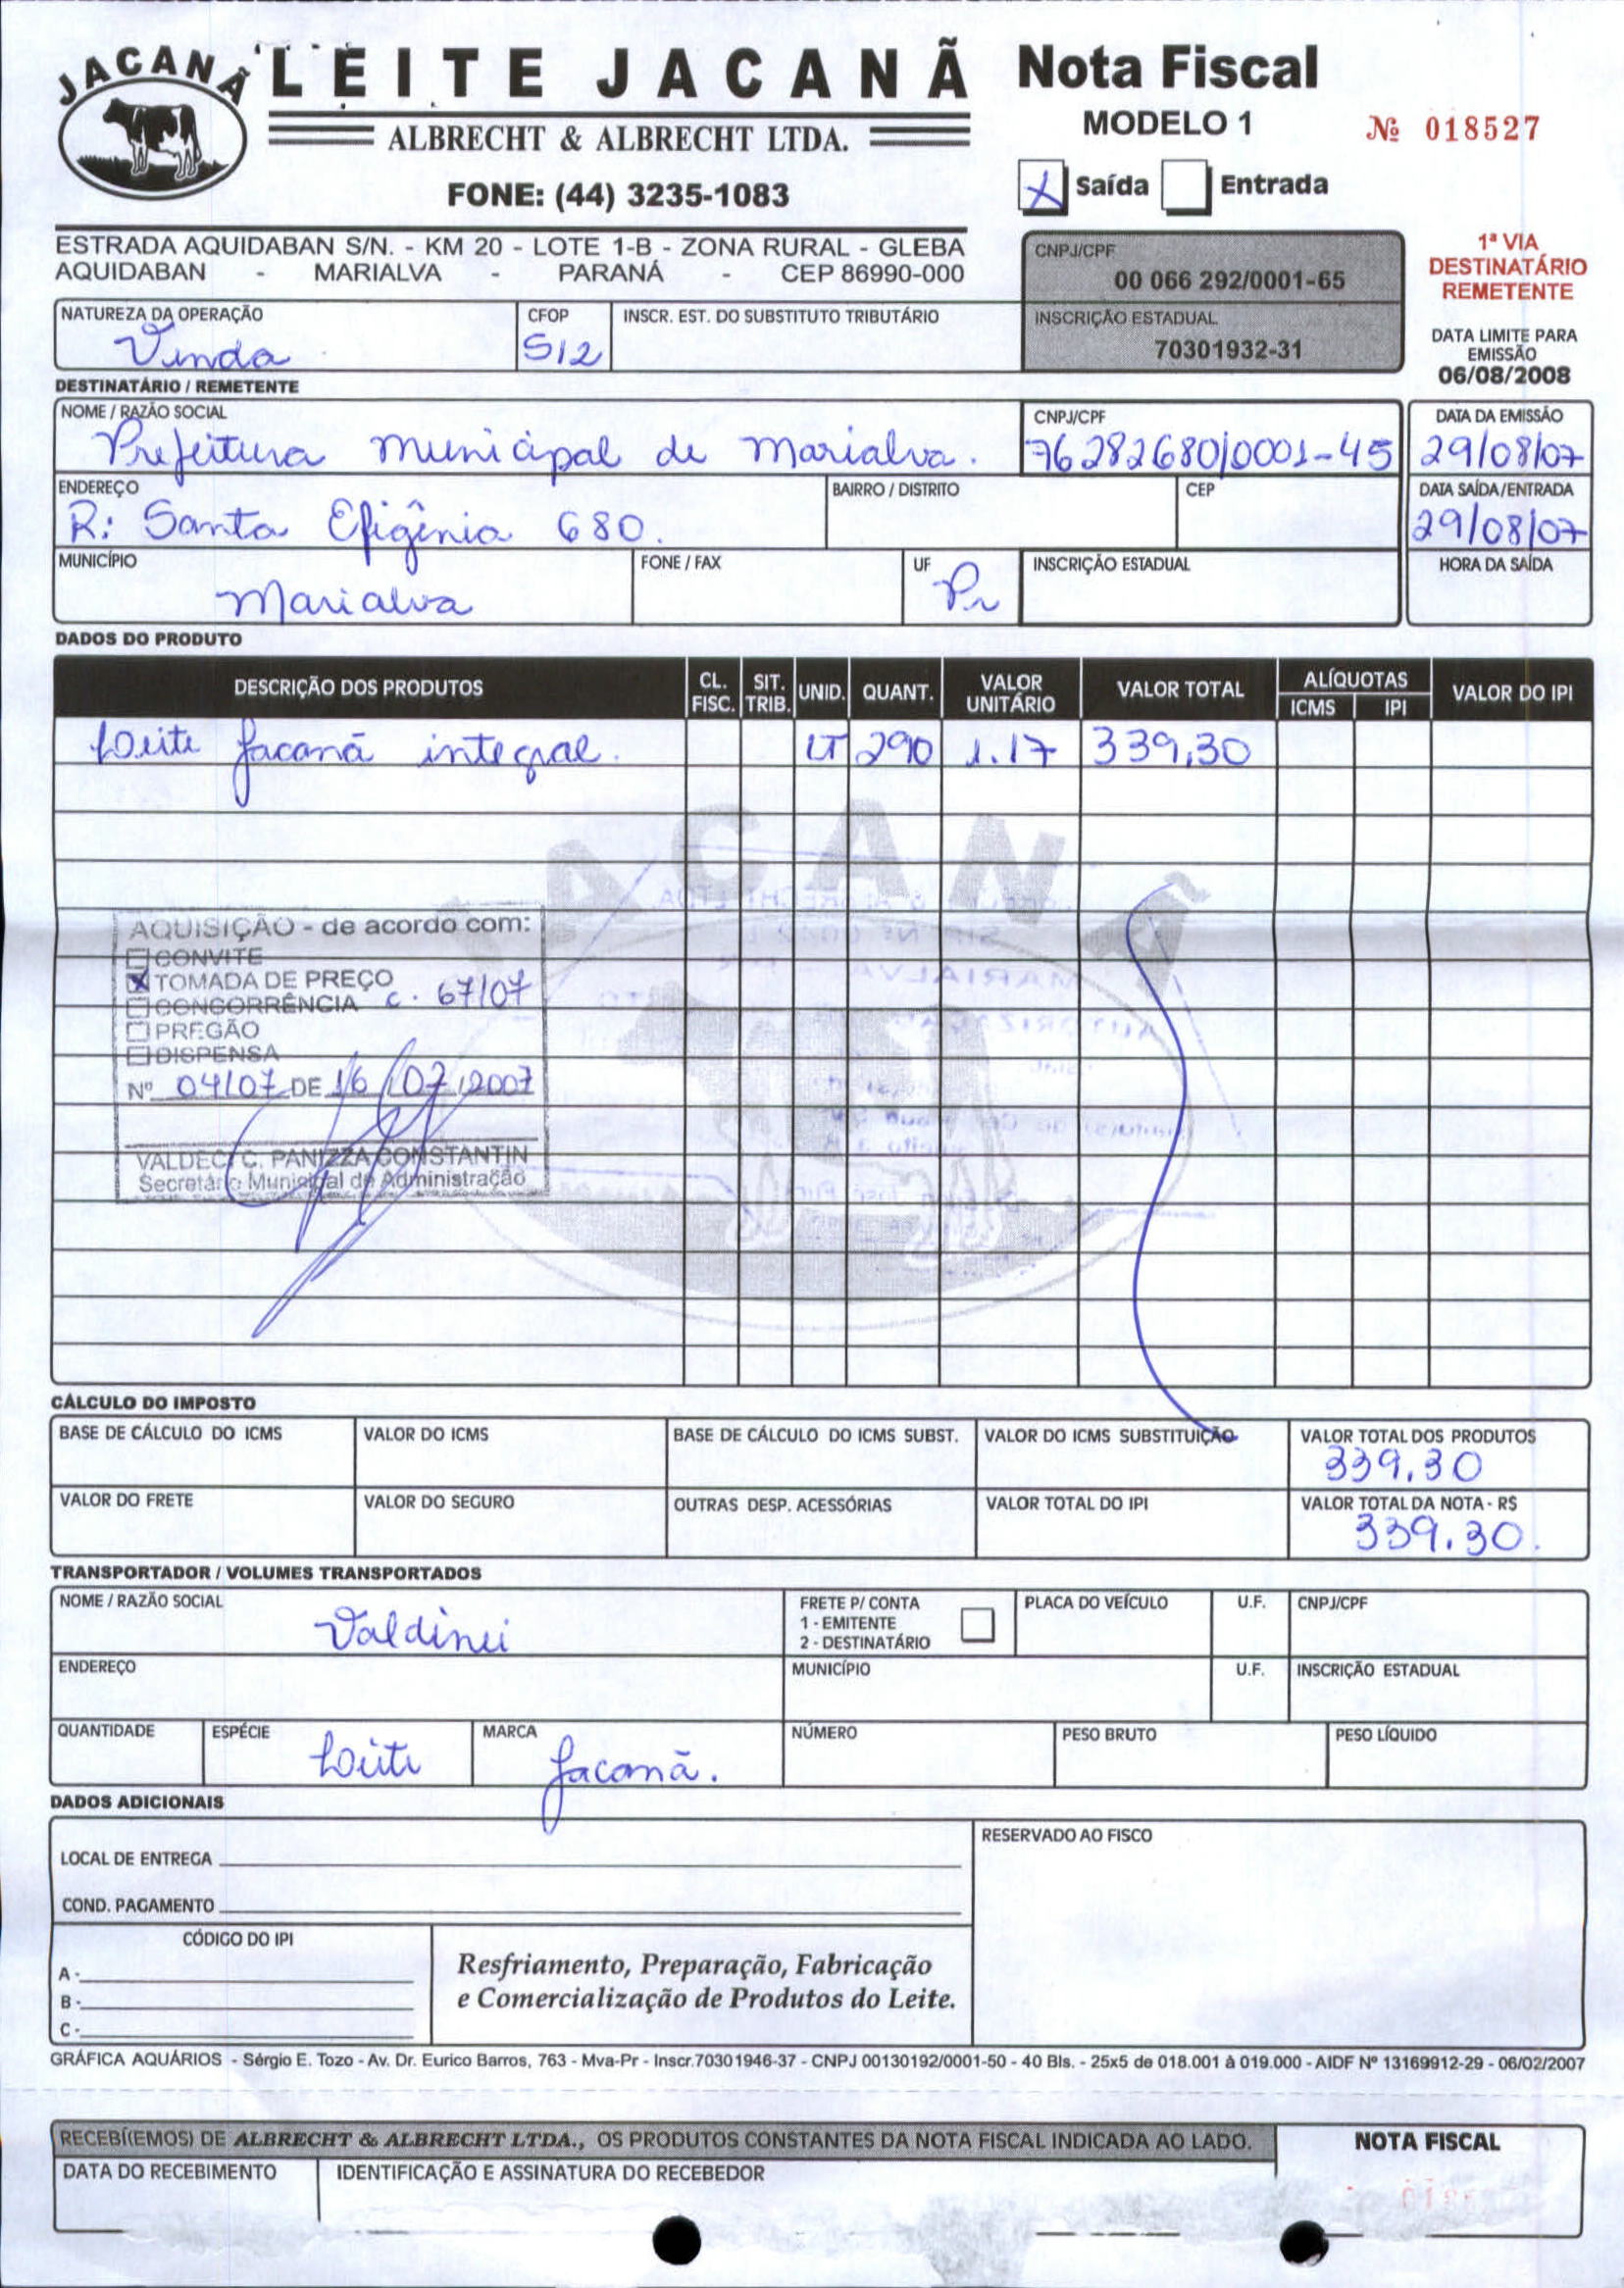 JACANÃ
LEITE JACANÃ
ALBRECHT & ALBRECHT LTDA.
FONE: (44) 3235-1083
Nota Fiscal
MODELO 1
Nº 018527
X Saída Entrada
ESTRADA AQUIDABAN S/N. - KM 20 - LOTE 1-B - ZONA RURAL - GLEBA
AQUIDABAN - MARIALVA - PARANÁ - CEP 86990-000
CNPJ/CPF
00 066 292/0001-65
INSCRIÇÃO ESTADUAL
70301932-31
1ª VIA
DESTINATÁRIO
REMETENTE
DATA LIMITE PARA
EMISSÃO
06/08/2008
NATUREZA DA OPERAÇÃO CFOP INSCR. EST. DO SUBSTITUTO TRIBUTÁRIO
Venda 512
DESTINATÁRIO / REMETENTE
NOME / RAZÃO SOCIAL CNPJ/CPF DATA DA EMISSÃO
Prefeitura municipal de marialva. 76282680/0001-45 29/08/07
ENDEREÇO BAIRRO / DISTRITO CEP DATA SAÍDA/ENTRADA
R: Santa Efigênia 680. 29/08/07
MUNICÍPIO FONE / FAX UF INSCRIÇÃO ESTADUAL HORA DA SAÍDA
Marialva Pr
DADOS DO PRODUTO
DESCRIÇÃO DOS PRODUTOS CL. FISC. SIT. TRIB. UNID. QUANT. VALOR UNITÁRIO VALOR TOTAL ALÍQUOTAS ICMS IPI VALOR DO IPI
Leite Jacanã integral. LT 290 1.17 339,30
JACANÃ
AQUISIÇÃO - de acordo com:
CONVITE
X TOMADA DE PREÇO
CONCORRÊNCIA c. 67/07
PREGÃO
DISPENSA
Nº 04/07 DE 16/07/2007
VALDECI C. PANIZZA CONSTANTIN
Secretário Municipal de Administração
CÁLCULO DO IMPOSTO
BASE DE CÁLCULO DO ICMS VALOR DO ICMS BASE DE CÁLCULO DO ICMS SUBST. VALOR DO ICMS SUBSTITUIÇÃO VALOR TOTAL DOS PRODUTOS
339,30
VALOR DO FRETE VALOR DO SEGURO OUTRAS DESP. ACESSÓRIAS VALOR TOTAL DO IPI VALOR TOTAL DA NOTA - R$
339,30.
TRANSPORTADOR / VOLUMES TRANSPORTADOS
NOME / RAZÃO SOCIAL FRETE P/ CONTA PLACA DO VEÍCULO U.F. CNPJ/CPF
1 - EMITENTE
2 - DESTINATÁRIO
Valdinei
ENDEREÇO MUNICÍPIO U.F. INSCRIÇÃO ESTADUAL
QUANTIDADE ESPÉCIE MARCA NÚMERO PESO BRUTO PESO LÍQUIDO
Leite Jacanã.
DADOS ADICIONAIS
RESERVADO AO FISCO
LOCAL DE ENTREGA
COND. PAGAMENTO
CÓDIGO DO IPI
A -
B -
C -
Resfriamento, Preparação, Fabricação
e Comercialização de Produtos do Leite.
GRÁFICA AQUÁRIOS - Sérgio E. Tozo - Av. Dr. Eurico Barros, 763 - Mva-Pr - Inscr.70301946-37 - CNPJ 00130192/0001-50 - 40 Bls. - 25x5 de 018.001 à 019.000 - AIDF Nº 13169912-29 - 06/02/2007
RECEBI(EMOS) DE ALBRECHT & ALBRECHT LTDA., OS PRODUTOS CONSTANTES DA NOTA FISCAL INDICADA AO LADO.
NOTA FISCAL
DATA DO RECEBIMENTO IDENTIFICAÇÃO E ASSINATURA DO RECEBEDOR